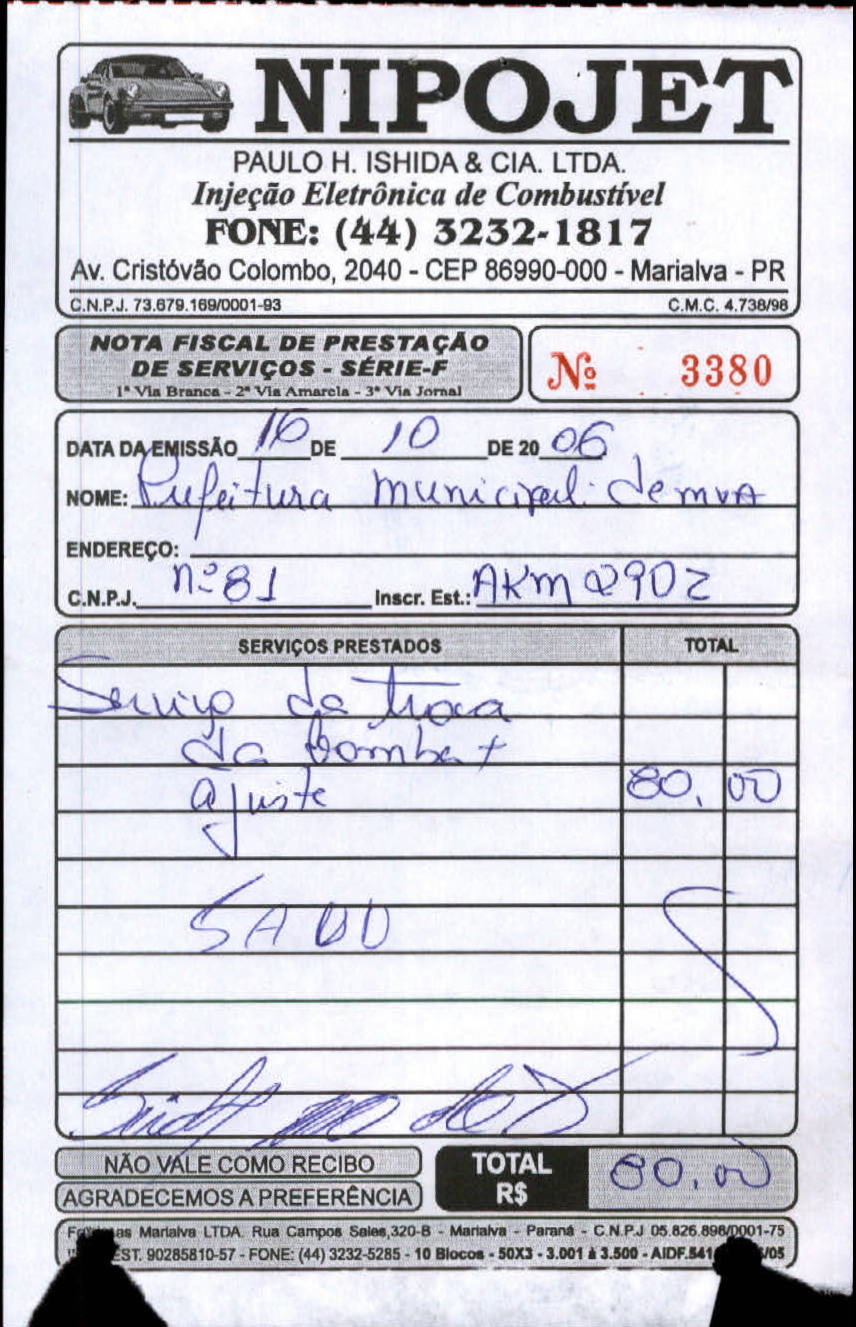 NIPOJET
PAULO H. ISHIDA & CIA. LTDA.
Injeção Eletrônica de Combustível
FONE: (44) 3232-1817
Av. Cristóvão Colombo, 2040 - CEP 86990-000 - Marialva - PR
C.N.P.J. 73.679.169/0001-93 C.M.C. 4.738/98
NOTA FISCAL DE PRESTAÇÃO
DE SERVIÇOS - SÉRIE-F
1ª Via Branca - 2ª Via Amarela - 3ª Via Jornal
Nº 3380
DATA DA EMISSÃO 16 DE 10 DE 20 06
NOME: Prefeitura municipal de mvA
ENDEREÇO:
C.N.P.J. nº 81 Inscr. Est.: AKM 2902
SERVIÇOS PRESTADOS TOTAL
Serviço da troca
da bomba +
ajuste 80,00
NÃO VALE COMO RECIBO
AGRADECEMOS A PREFERÊNCIA
TOTAL
R$ 80,00
Marialva LTDA. Rua Campos Sales,320-B - Marialva - Paraná - C.N.P.J 05.826.898/0001-75
EST. 90285810-57 - FONE: (44) 3232-5285 - 10 Blocos - 50X3 - 3.001 à 3.500 - AIDF.541 /05